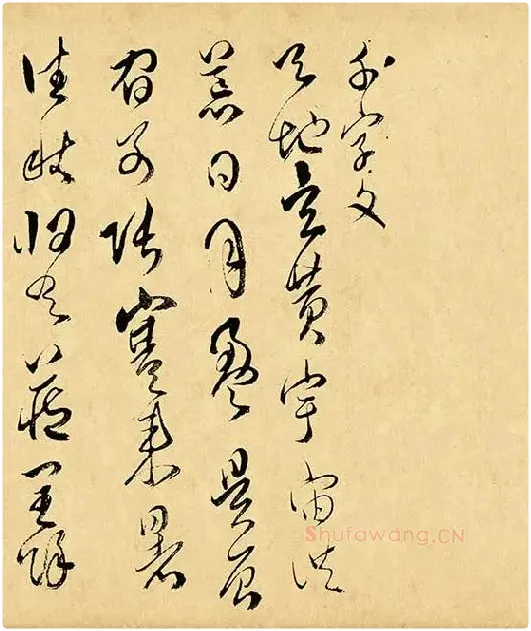 千字文
天地玄黄宇宙洪
荒日月盈昃辰
宿列張寒来暑
往秋收冬藏閏餘
Shufawang.CN